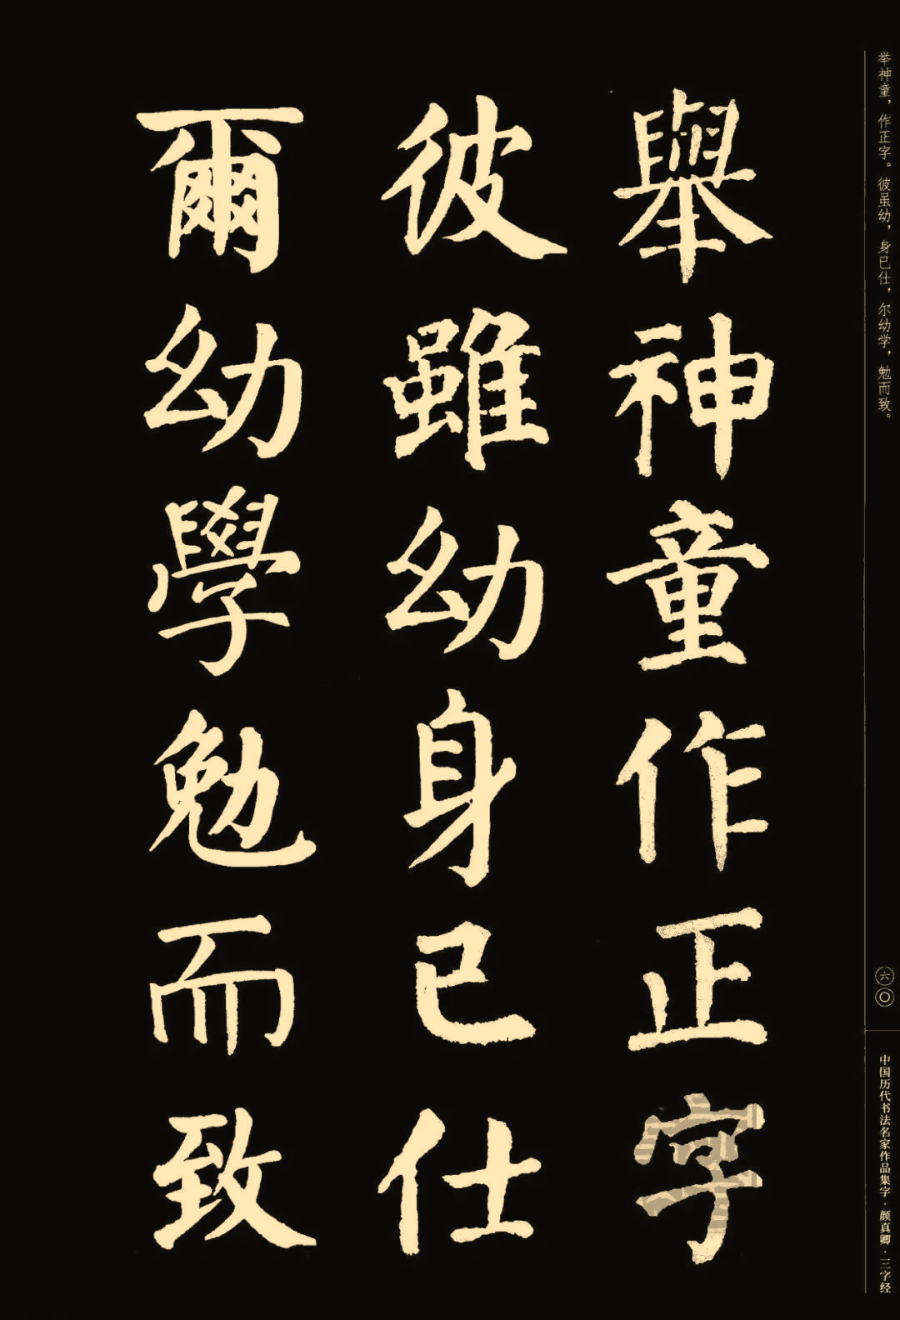 舉神童作正字
彼雖幼身已仕
爾幼學勉而致
举神童，作正字。彼虽幼，身已仕，尔幼学，勉而致。
六〇
中国历代书法名家作品集字·颜真卿·三字经